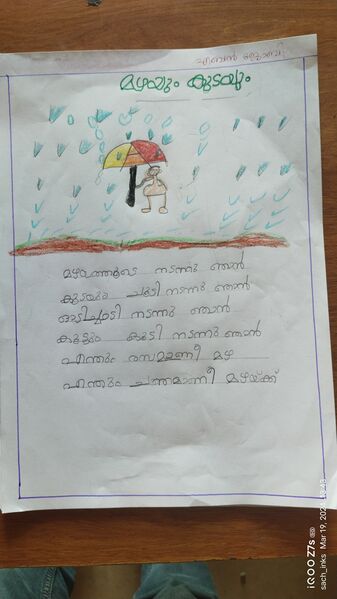 എബൻ ജോബി
മഴയും കുടയും
മഴത്തൂടെ നടന്നു ഞാൻ
കുടയും ചൂടി നടന്നു ഞാൻ
ഓടിച്ചാടി നടന്നു ഞാൻ
കൂട്ടും കൂടി നടന്നു ഞാൻ
എന്തും രസമാണീ മഴ
എന്തും ചന്തമാണീ മഴയ്ക്ക്
iQOO Z7s 5G
sach_inks Mar 19, 202